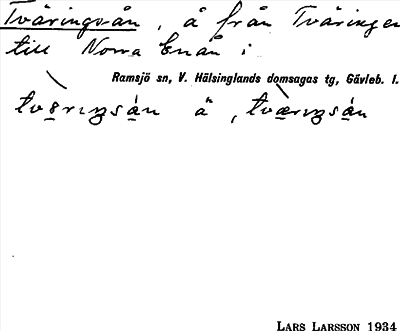 Tväringsån, å från Tväringen
till Norra Enån i
Ramsjö sn, V. Hälsinglands domsagas tg, Gävleb. l.
å
LARS LARSSON 1934